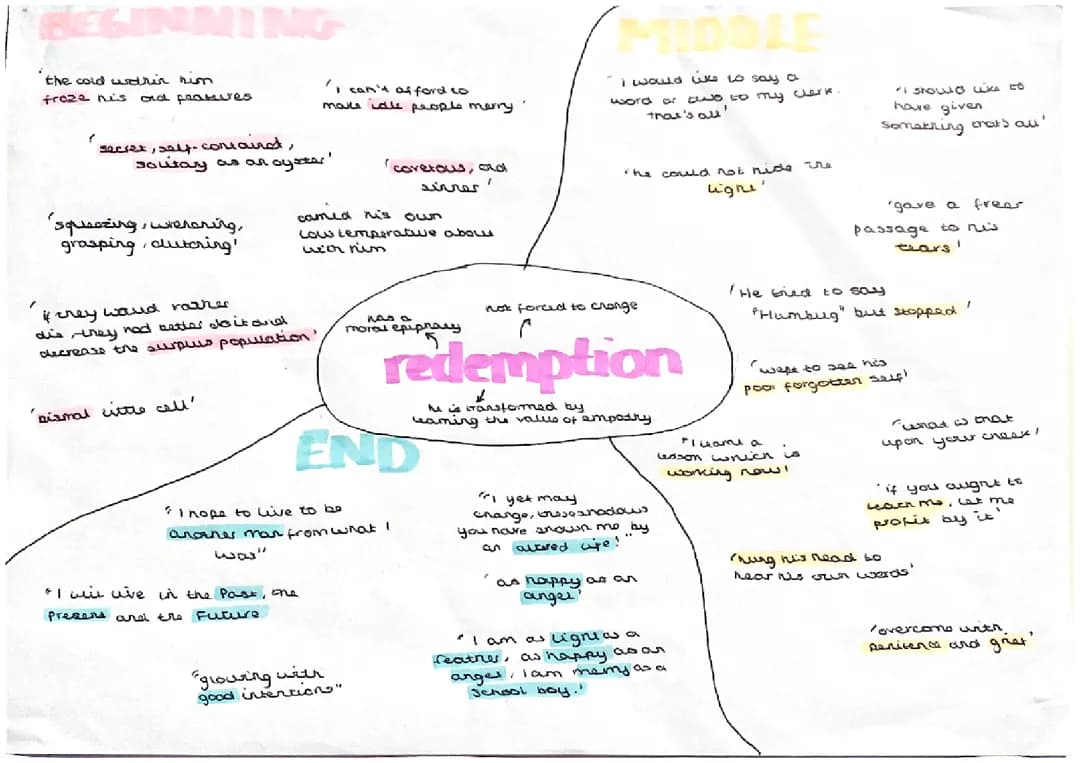 BEGINNING
'the cold within him
froze his old features
'I can't afford to
make idle people merry'
'secret, self-contained,
solitary as an oyster'
'covetous, old
sinner'
'squeezing, wrenching,
grasping, clutching'
carried his own
low temperature
with him
'if they would rather
die, they had better do it and
decrease the surplus population'
'dismal little cell'
MIDDLE
'I would like to say a
word or two to my clerk.
that's all'
'I should like to
have given
something that's all'
'he could not hide the
light'
'gave a freer
passage to his
tears'
'He tried to say
"Humbug" but stopped'
'wept to see his
poor forgotten self'
'what is that
upon your cheek'
"I learnt a
lesson which is
working now'
'if you aught to
teach me, let me
profit by it'
'hung his head to
hear his own words'
'overcome with
penitence and grief'
has a
moral epiphany
not forced to change
redemption
he is transformed by
learning the value of empathy
END
"I hope to live to be
another man from what I
was"
"I yet may
change, these shadows
you have shown me by
an altered life!"
'as happy as an
angel'
"I will live in the Past, the
Present and the Future
"I am as light as a
feather, as happy as an
angel, I am merry as a
school boy.'
"glowing with
good intentions"